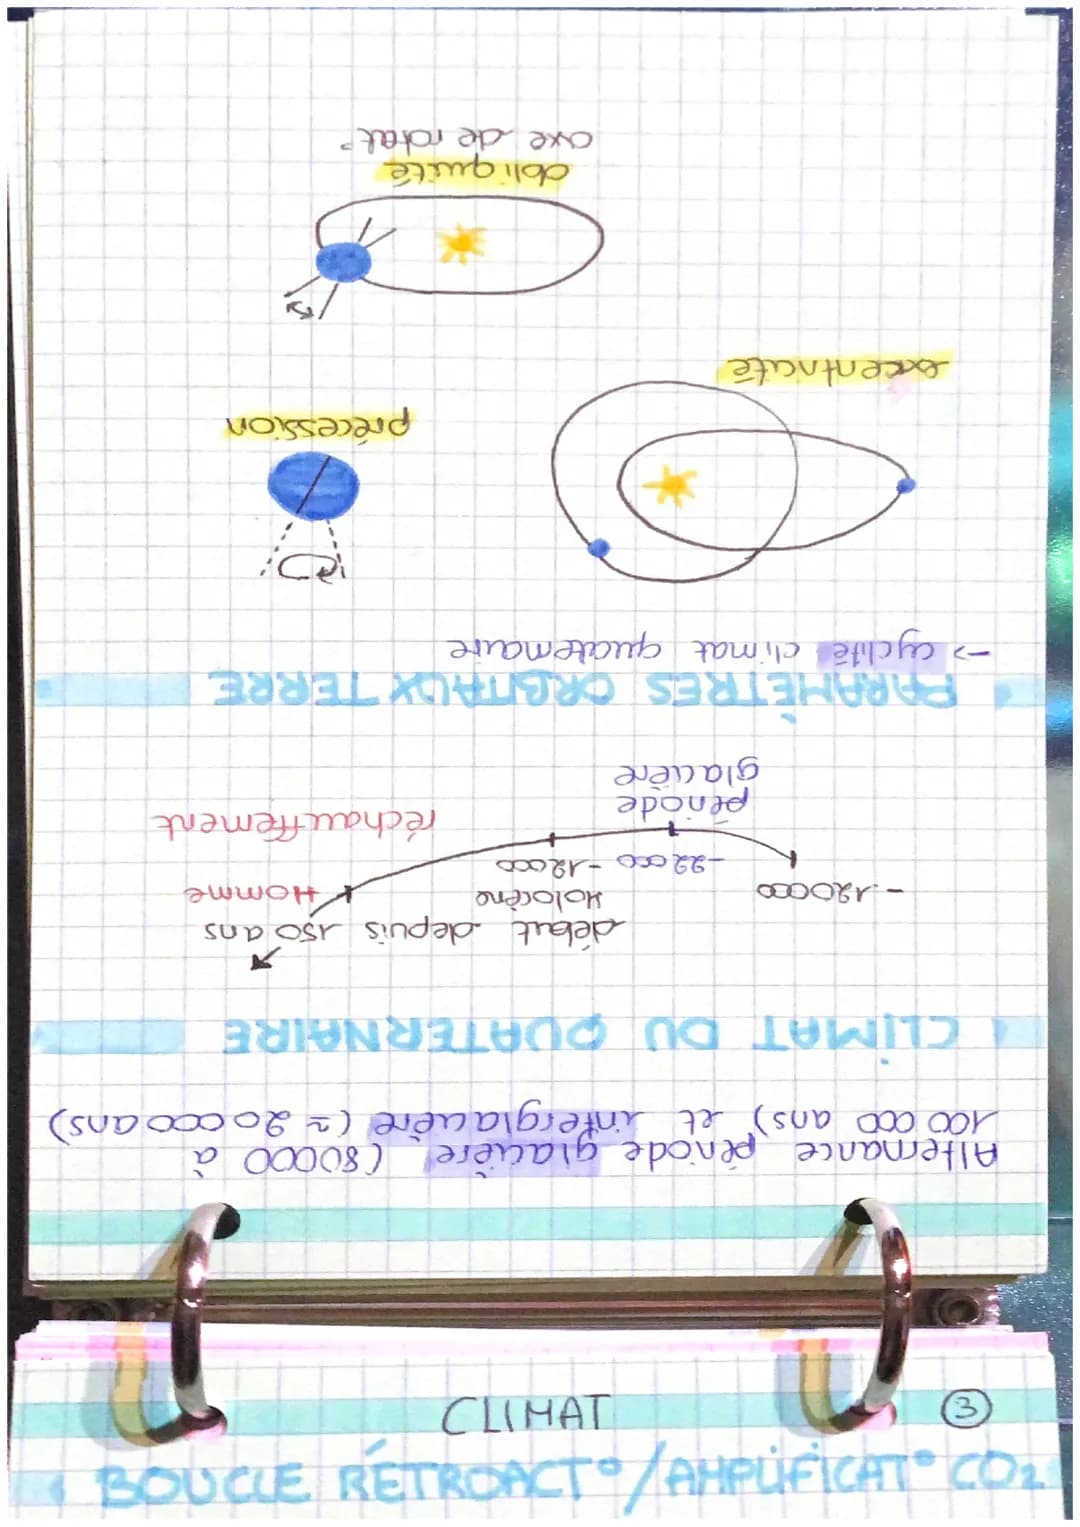 Alternance période glacière (80000 à
100 000 ans) et interglacière (≈ 20 000 ans)
CLIMAT DU QUATERNAIRE
début depuis 150 ans
Holocène
Homme
-120000
-22000
-12000
réchauffement
période
glacière
PARAMÈTRES ORBITAUX TERRE
-> cyclité climat quaternaire
précession
excentricité
obliquité
axe de rotat°
CLIMAT
3
BOUCLE RÉTROACT°/AMPLIFICAT° CO2